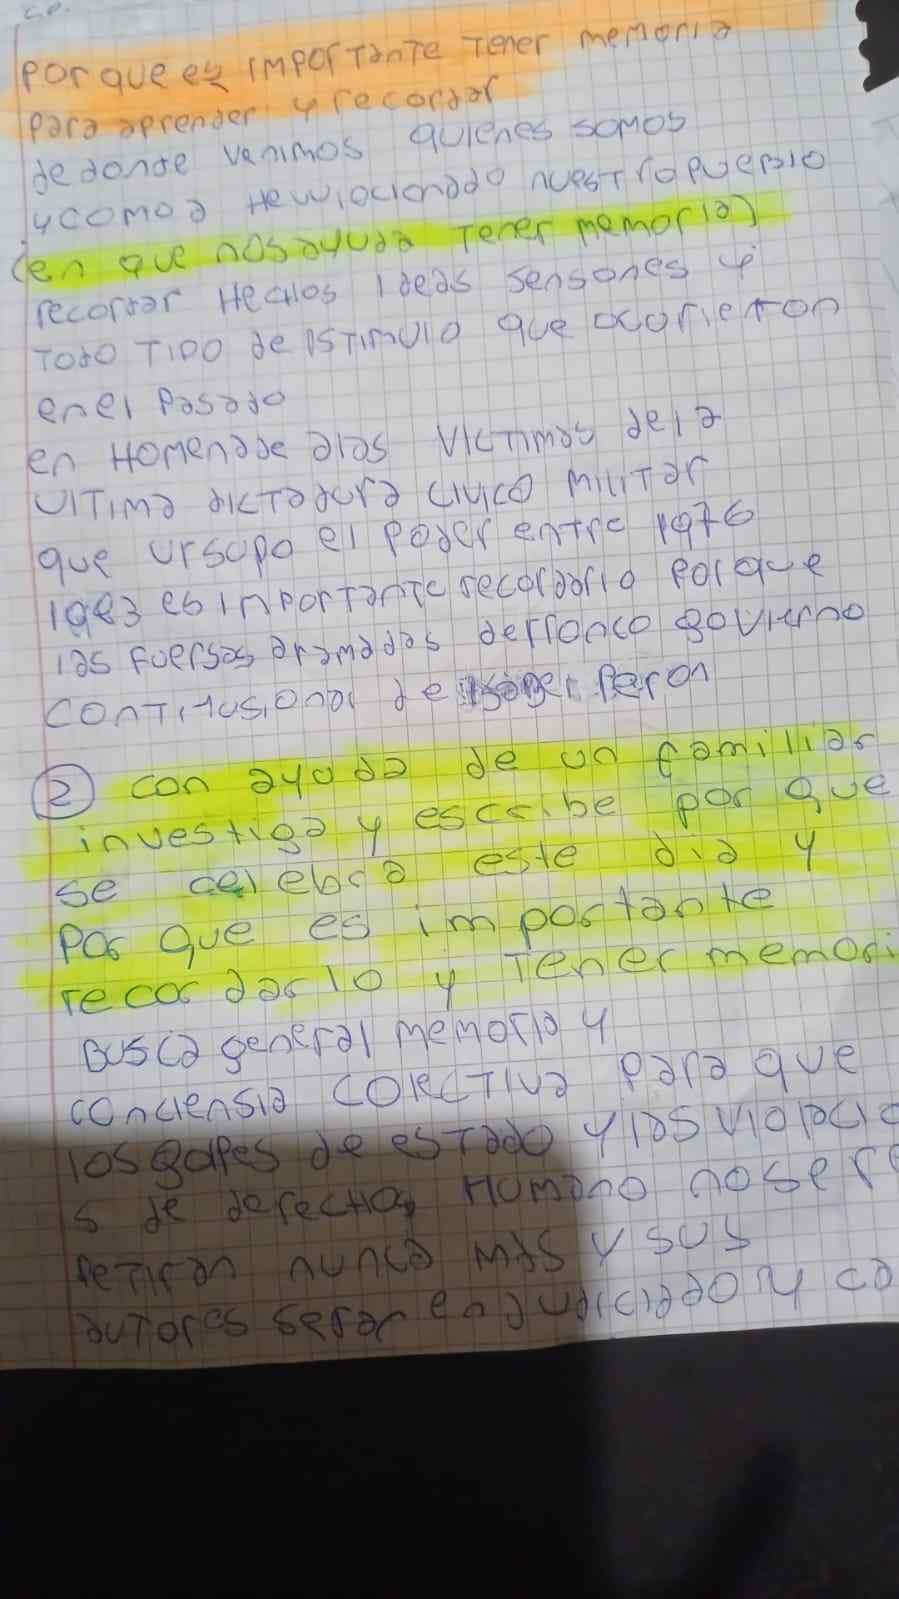 por que es importante tener memoria
para aprender y recordar
de donde venimos quienes somos
y como a Hevuolcionado nuestro pueblo
(en que nos ayuda tener memoria)
recordar Hechos ideas sensones y
todo tipo de istimulo que ocorieron
en el pasado
en Homenaje a las victimas de la
ultima dictadura civico militar
que ursupo el poder entre 1976
1983 es inportante recordarlo porque
las fuersas aramadas derronco govierno
de Peron
② con ayuda de un familiar
investiga y escribe por que
se celebra este dia y
por que es importante
recordarlo y Tener memori
Busca general memoria y
conciensia colectiva para que
los golpes de estado y las violacio
s de derechos Humano no se re
petiran nunca mas y sus
autores seran enjuiciado y co